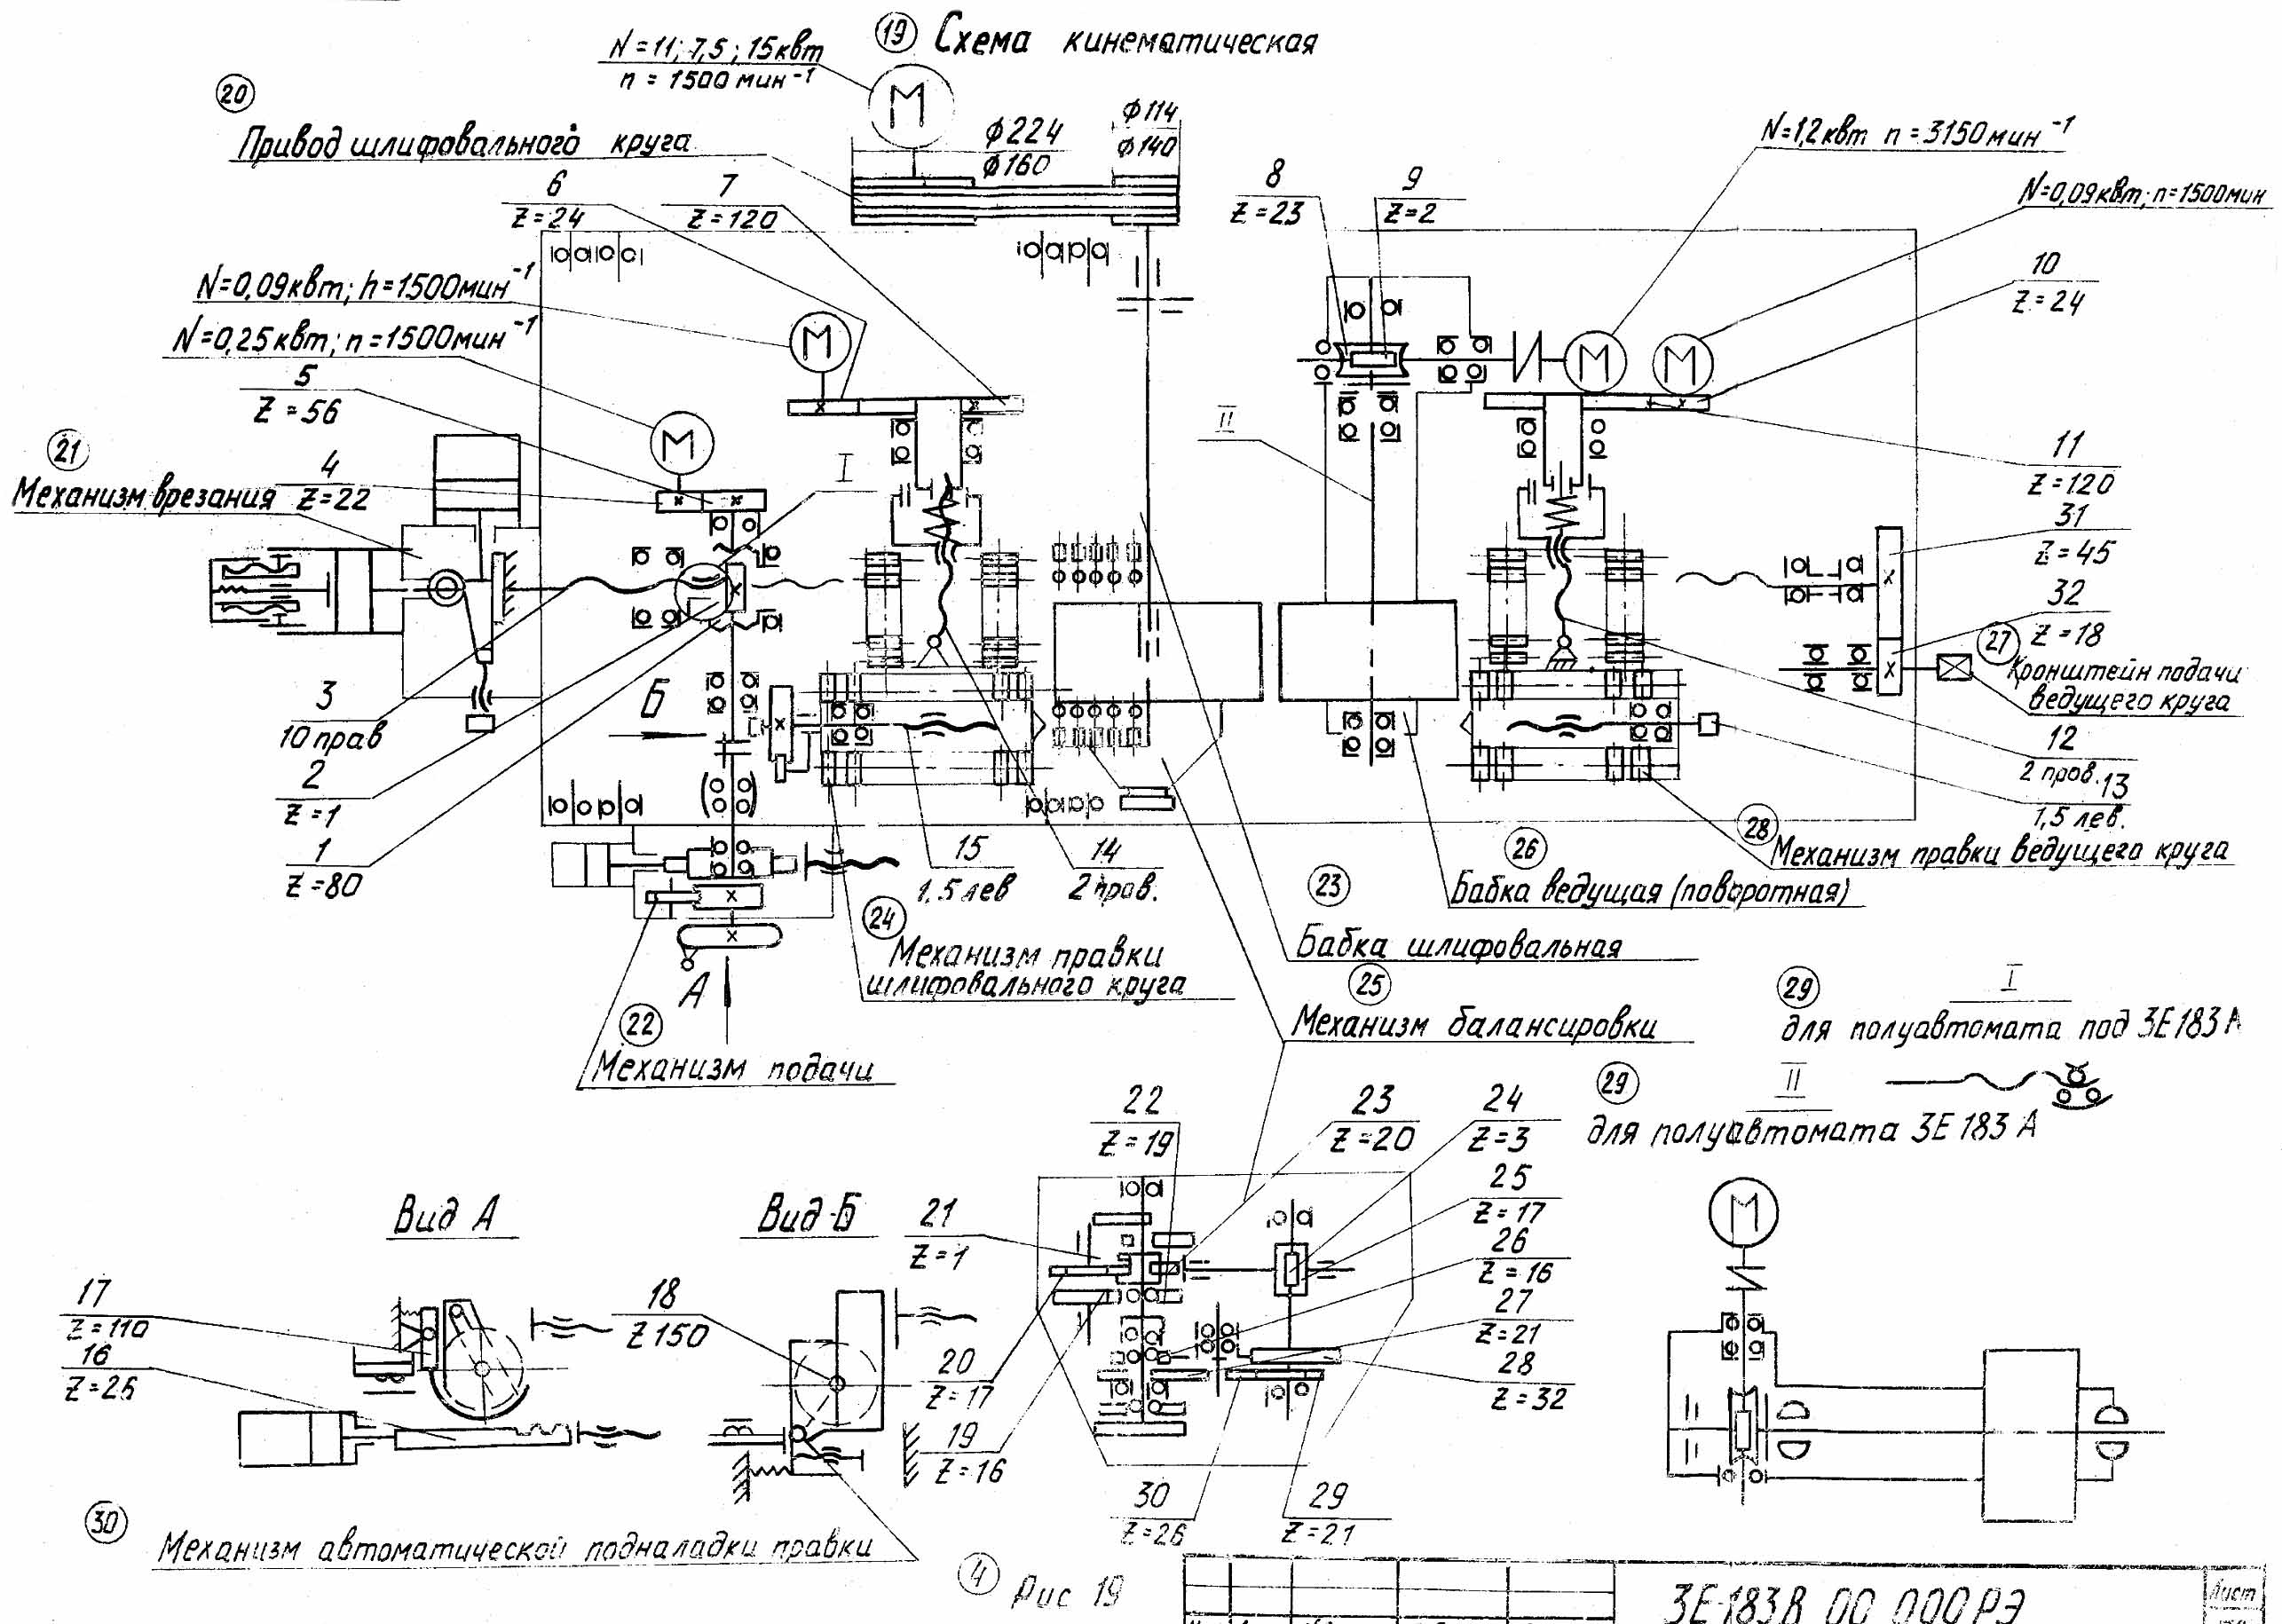 19 Схема кинематическая
N=11; 7,5; 15квт
n = 1500 мин⁻¹
20
Привод шлифовального круга
ϕ224
ϕ160
ϕ114
ϕ140
N=1,2квт n=3150мин⁻¹
N=0,09квт; n=1500мин
6
Z=24
7
Z=120
8
Z=23
9
Z=2
10
Z=24
N=0,09квт; h=1500мин⁻¹
N=0,25квт; n=1500мин⁻¹
5
Z=56
М
М
М
М
М
21
Механизм врезания
4
Z=22
I
II
11
Z=120
31
Z=45
32
Z=18
27
Кронштейн подачи
ведущего круга
3
10 прав
Б
2
Z=1
1
Z=80
12
2 прав.
13
1,5 лев.
15
1,5 лев
14
2 прав.
28
Механизм правки ведущего круга
26
Бабка ведущая (поворотная)
23
Бабка шлифовальная
24
Механизм правки
шлифовального круга
А
22
Механизм подачи
25
Механизм балансировки
29
I
для полуавтомата под 3Е183А
29
II
для полуавтомата 3Е183А
М
Вид А
Вид Б
17
Z=110
16
Z=25
18
Z150
21
Z=1
22
Z=19
23
Z=20
24
Z=3
25
Z=17
26
Z=16
27
Z=21
28
Z=32
20
Z=17
19
Z=16
30
Z=26
29
Z=21
30
Механизм автоматической подналадки правки
4 Рис 19
3Е183В 00 000РЭ
Лист